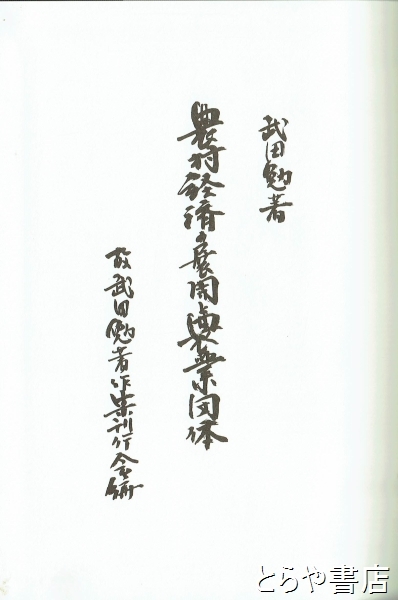 武田勉著
農村経済の展開と農業団体
故武田勉著作集刊行会編
とらや書店